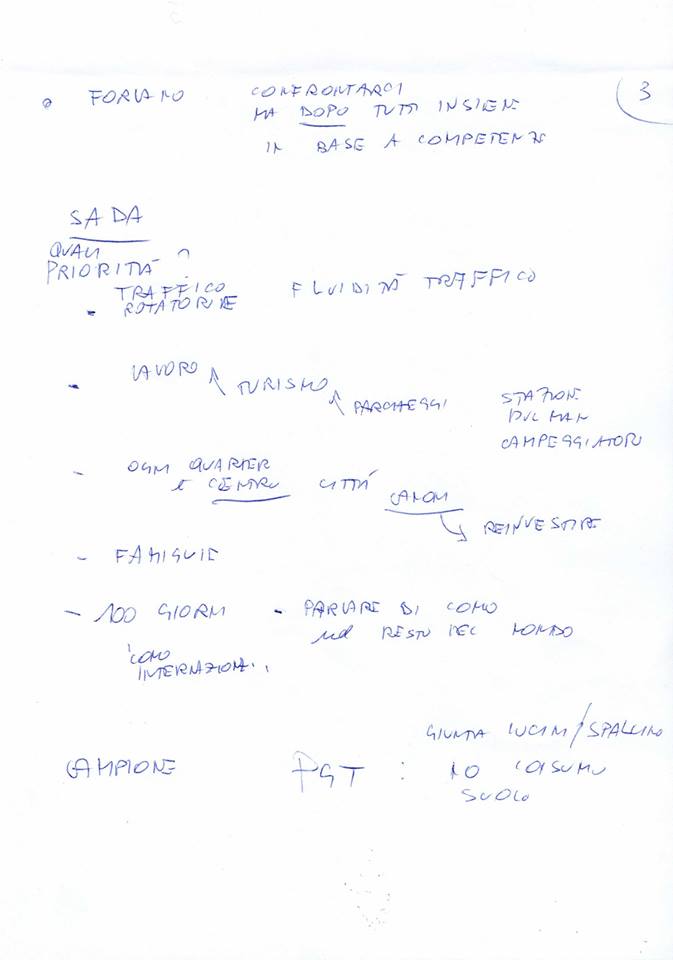 3
• FORLANO CONFRONTARCI
MA DOPO TUTTI INSIEME
IN BASE A COMPETENZE
SADA
QUALI
PRIORITÀ ?
- TRAFFICO FLUIDITÀ TRAFFICO
ROTATORIE
- LAVORO TURISMO PARCHEGGI STAZION
PULMAN
CAMPEGGIATORI
- OGNI QUARTIER
È CENTRO CITTÀ
CANONI
REINVESTIRE
- FAMIGLIE
- 100 GIORNI - PARLARE DI COMO
nel RESTO DEL MONDO
"COMO
INTERNAZION..
GIUNTA LUCINI/SPALLINO
CAMPIONE PGT : NO CONSUMO
SUOLO